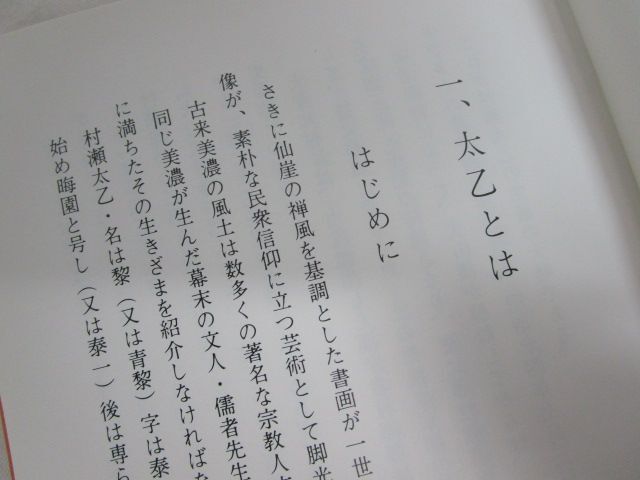 一、太乙とは
はじめに
さきに仙崖の禅風を基調とした書画が一世
像が、素朴な民衆信仰に立つ芸術として脚光
古来美濃の風土は数多くの著名な宗教人
同じ美濃が生んだ幕末の文人・儒者先生
に満ちたその生きざまを紹介しなければな
村瀬太乙・名は黎（又は青黎）字は泰
始め晦園と号し（又は泰一）後は専ら